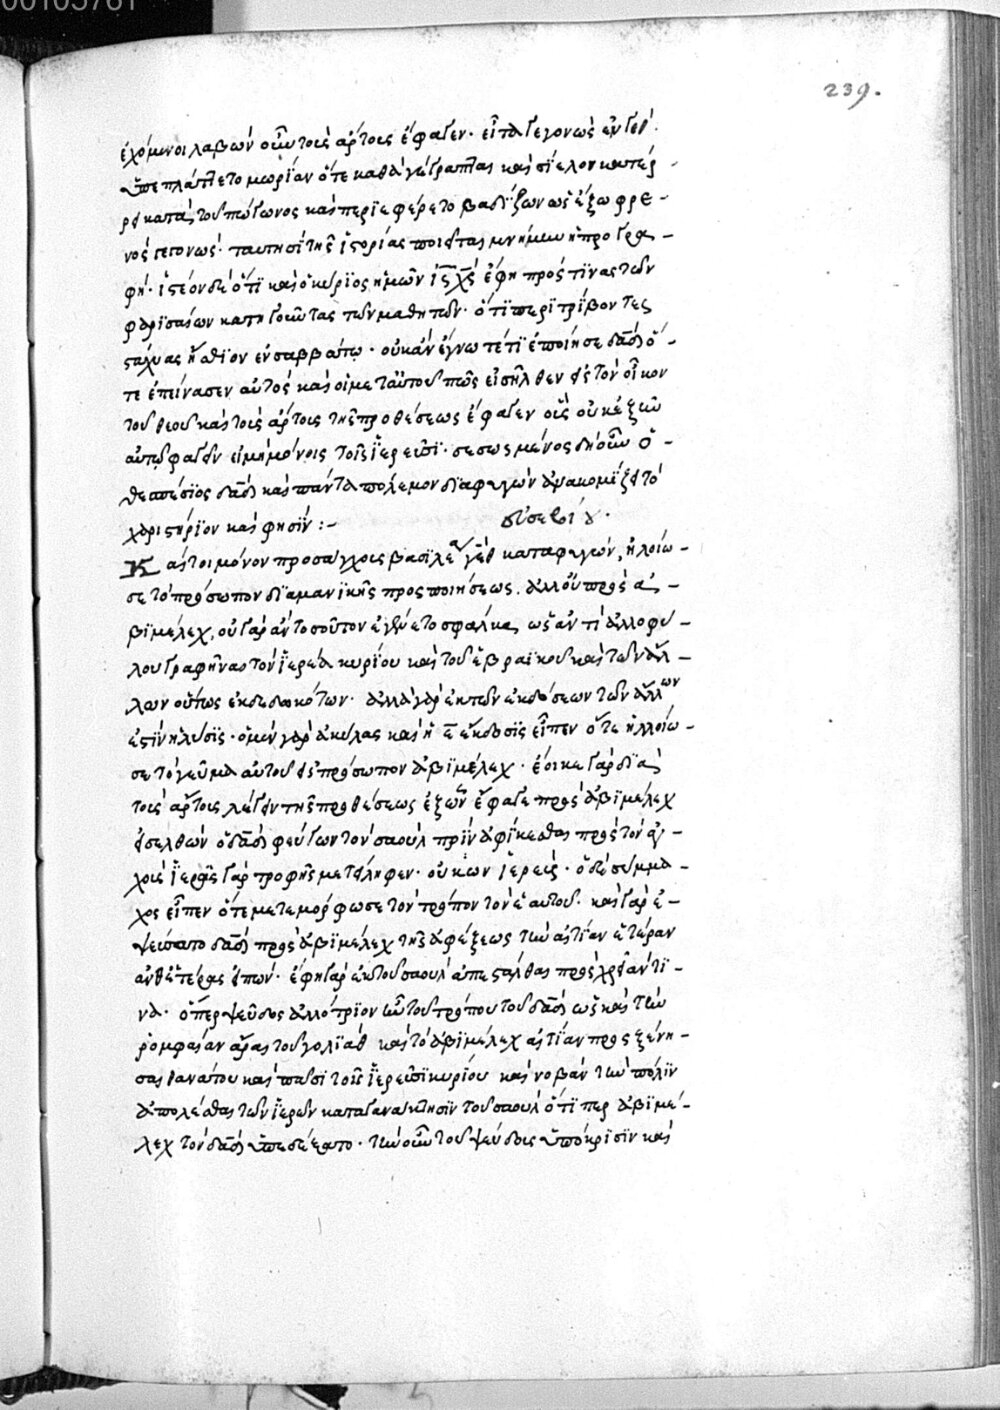 00105781
239.
ἐχόμενοι λαβὼν οὖν τοὺς ἄρτους ἔφαγεν· εἶτα γεγονὼς ἐν γὲθ
ὑπεπλάττετο μωρίαν ὅτε καθὰ γέγραπται καὶ σίελον κατέρ-
ρει κατὰ τοῦ πώγωνος καὶ περιεφέρετο βαδίζων ὡς ἔξω φρε-
νὸς γεγονώς· ταύτης τῆς ἱστορίας ποιεῖται μνήμην ἡ προγρα-
φή· ἰστέον δὲ ὅτι καὶ ὁ κύριος ἡμῶν ἰς χς ἔφη πρός τινας τῶν
φαρισαίων κατηγοροῦντας τῶν μαθητῶν· ὅτι περ τρίβοντες
στάχυας ἤσθιον ἐν σαββάτῳ· οὐκ ἀνέγνωτε τί ἐποίησε δαδ ὅ-
τε ἐπείνασεν αὐτὸς καὶ οἱ μετ αὐτοῦ πῶς εἰσῆλθεν εἰς τὸν οἶκον
τοῦ θεοῦ καὶ τοὺς ἄρτους τῆς προθέσεως ἔφαγεν οὓς οὐκ ἐξῆν
αὐτῷ φαγεῖν εἰ μὴ μόνοις τοῖς ἱερεῦσι· σεσωσμένος δὴ οὖν ὁ
θεσπέσιος δαδ καὶ πάντα πόλεμον διαφυγὼν ἀνακομίζει τὸ
χαριστήριον καὶ φησίν :-
εὐσεβίου·
Καίτοι μόνον πρὸς ἀγχοῦς βασιλέα γὲθ καταφυγών, ἠλλοίω-
σε τὸ πρόσωπον διὰ μανικῆς προσποιήσεως. ἀλλ οὐ πρὸς ἀ-
βιμέλεχ, οὐ γὰρ ἂν τοσοῦτον ἐγένετο σφάλμα, ὡς ἀντὶ ἀλλοφύ-
λου γραφῆναι τὸν ἱερέα κυρίου καὶ τοῦ ἑβραϊκοῦ καὶ τῶν ἄλ-
λων οὕτως ἐκδεδωκότων· ἀλλὰ γὰρ ἐκ τῶν ἐκδόσεων τῶν ἄλλων
ἐστὶν ἡ λύσις· ὁ μὲν γὰρ ἀκύλας καὶ ἡ ε ἔκδοσις εἶπεν ὅτε ἠλλοίω-
σε τὸ γεῦμα αὐτοῦ εἰς πρόσωπον ἀβιμέλεχ· ἔοικε γὰρ διὰ
τοὺς ἄρτους λέγειν τῆς προθέσεως ἐξ ὧν ἔφαγε πρὸς ἀβιμέλεχ
εἰσελθὼν ὁ δαδ φεύγων τὸν σαοὺλ πρὶν ἀφικέσθαι πρὸς τὸν ἀγ-
χούς ἱερᾶς γὰρ τροφῆς μετείληφεν· οὐκ ὢν ἱερεύς· ὁ δὲ σύμμα-
χος εἶπεν ὅτε μετεμόρφωσε τὸν τρόπον τὸν ἑαυτοῦ· καὶ γὰρ ἐ-
ψεύσατο δαδ πρὸς ἀβιμέλεχ τῆς ἀφίξεως τὴν αἰτίαν ἑτέραν
ἀνθ ἑτέρας εἰπών· ἔφη γὰρ ἐκ τοῦ σαοὺλ ἀπεστάλθαι πρὸς χρείαν τι-
να· ὅπερ ψεῦδος ἀλλότριον ἦν τοῦ τρόπου τοῦ δαδ ὡς καὶ τὴν
ῥομφαίαν ἄρας τοῦ γολιὰθ καὶ τῷ ἀβιμέλεχ αἴτιαν προσξενή-
σας θανάτου καὶ πᾶσι τοῖς ἱερεῦσι κυρίου καὶ νοβὰν τὴν πόλιν
ἀπολέσθαι τῶν ἱερῶν κατ ἀγανάκτησιν τοῦ σαοὺλ ὅτι περ ἀβιμέ-
λεχ τὸν δαδ ὑπεδέξατο· τὴν οὖν τοῦ ψεύδους ὑπόκρισιν καὶ